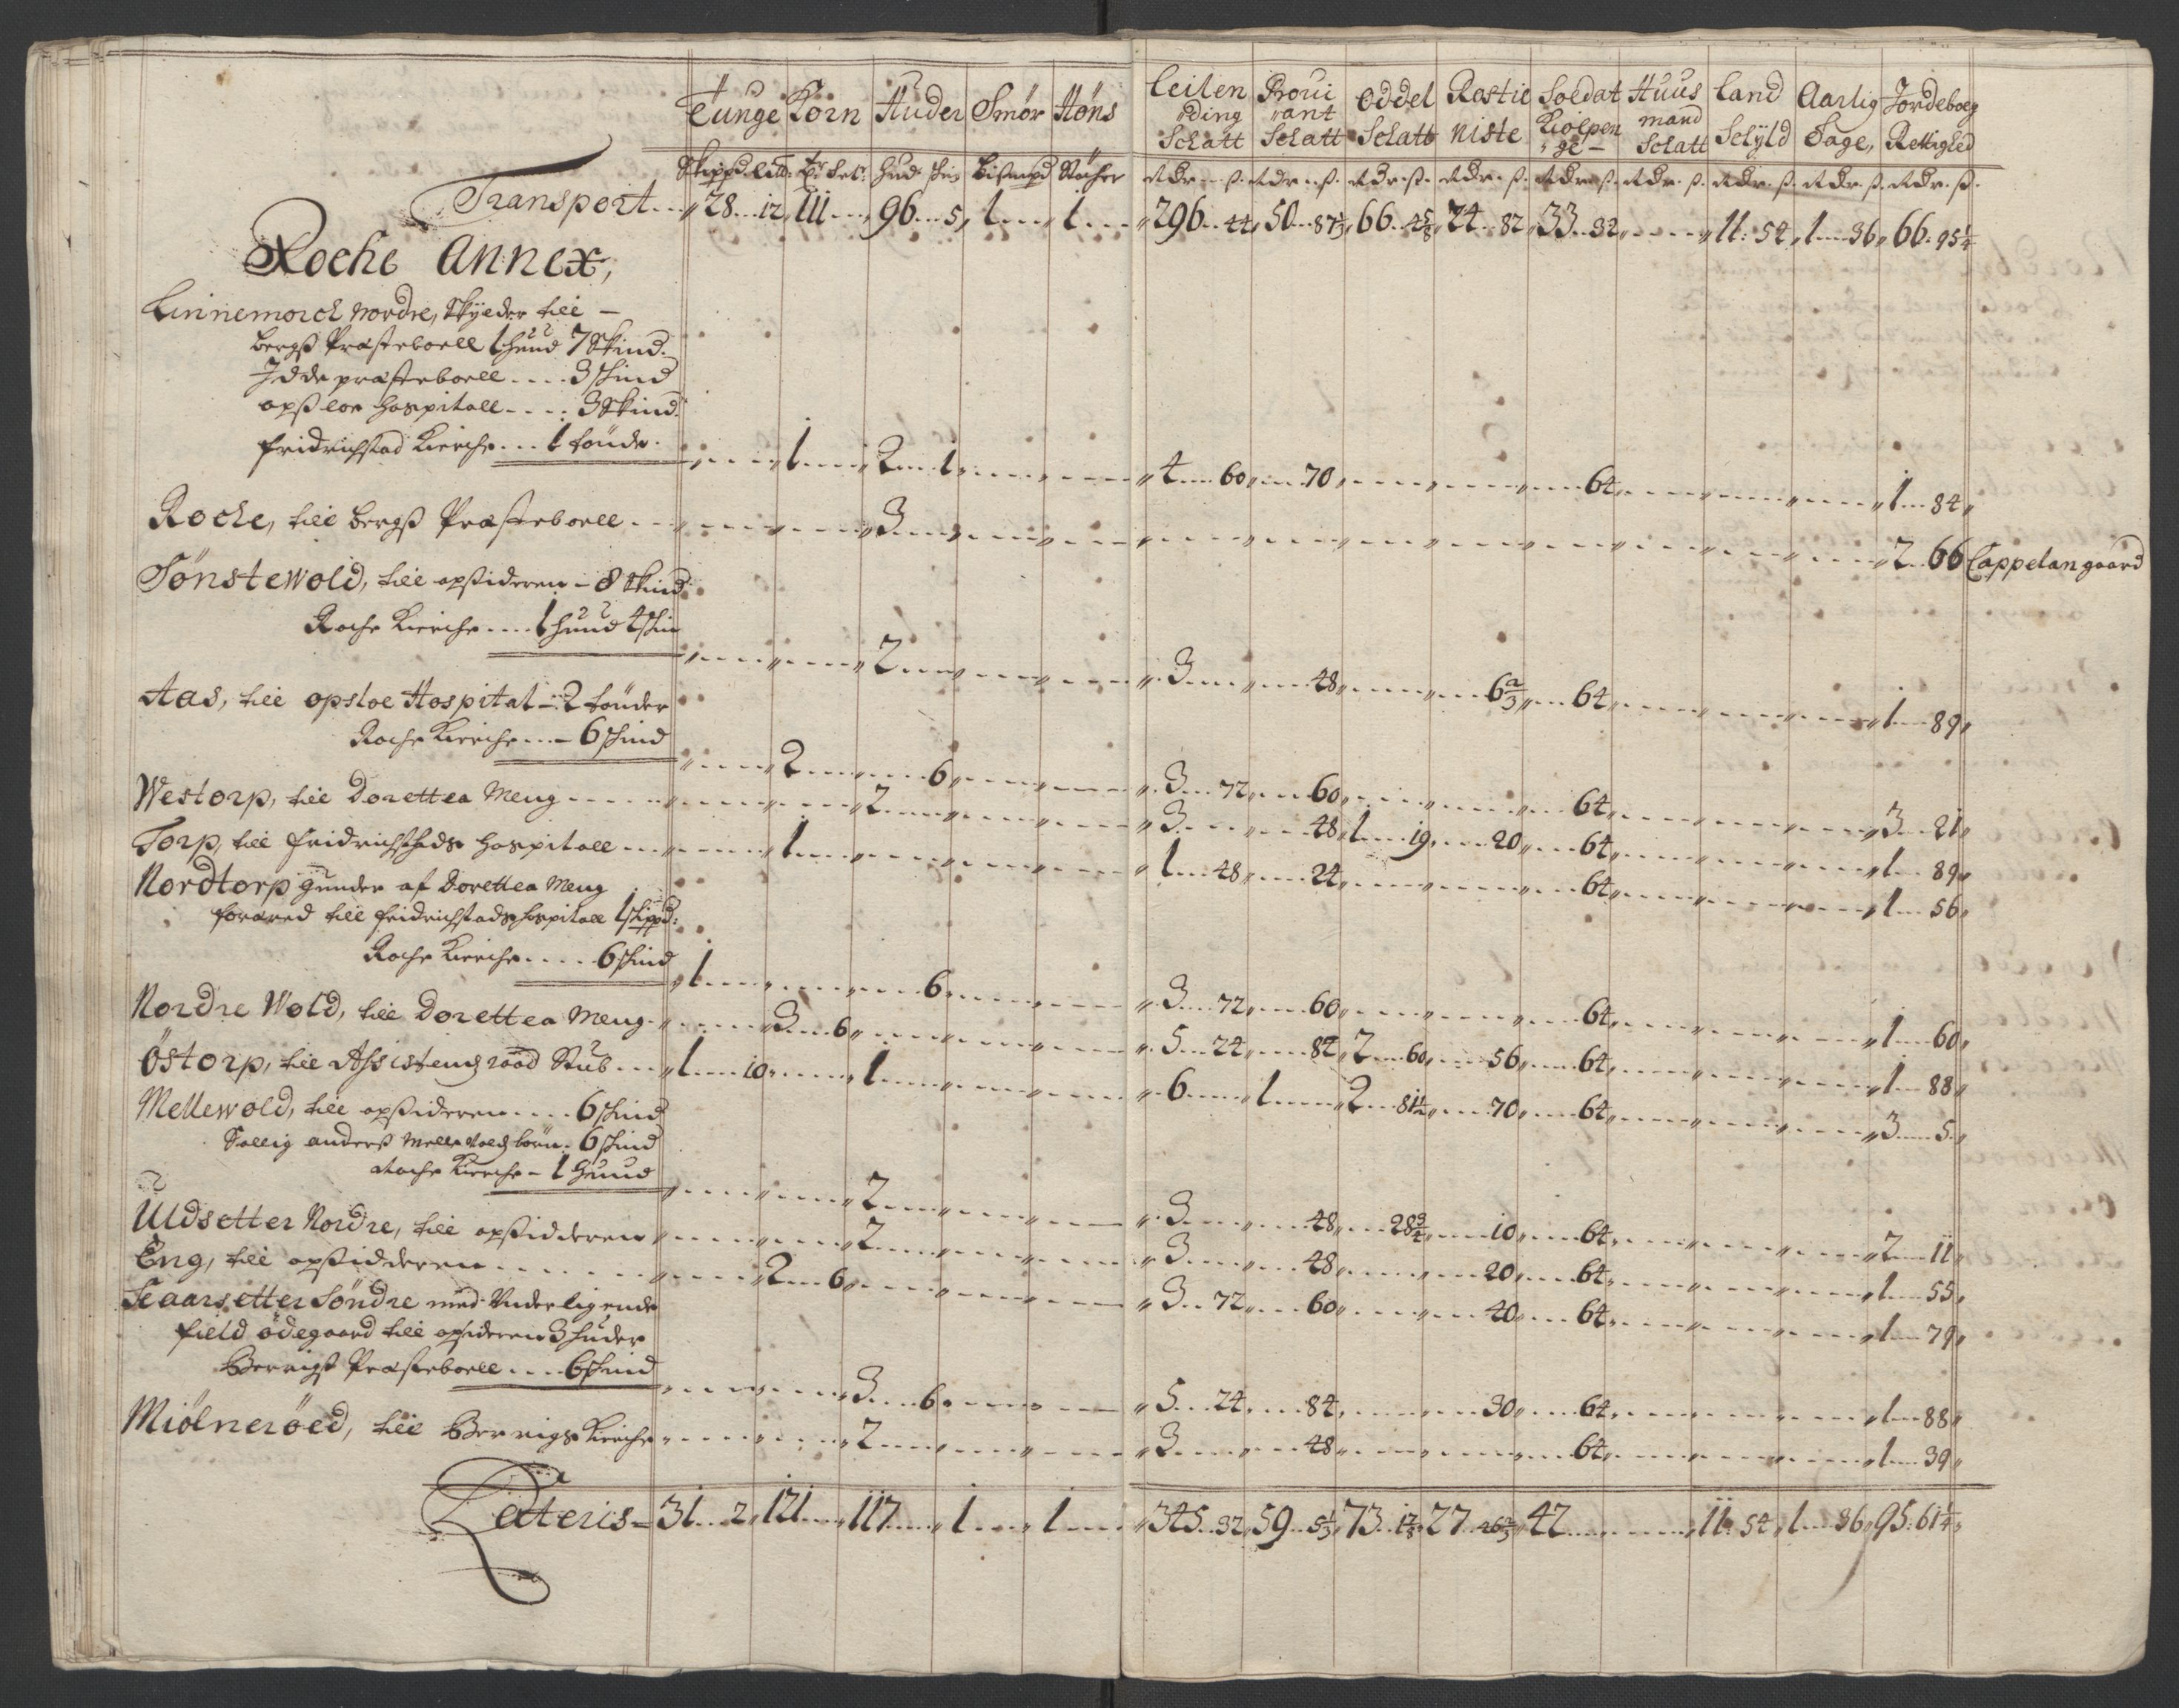 Tunge Korn Huder Smør Høns Leilending Schatt Proviant Schatt Oddel Schatt Rostieniste Soldat Kløepenge Huusmand Schatt Land Schyld Aarlig Sage, Jordeboeg Rettighed
Transport 28 12 111 96 5 1 1 296 44 50 87 1/3 66 45/8 24 82 33 32 11 54 1 36 66 95 1/4
Rocke Annex,
Linnemorck Nordre, Skylder till
Bergs Præsteboell 1 huud 7 Skind.
Idde præsteboell 3 skind
opsloe Hospitall 3 Skind.
fridrichstad Kierche 1 tønde.
1 2 1 4 60 70 64 1 84
Rocke, till Bergs Præsteboell 3 2 66 Cappelangaard
Tønstewold, till opsideren 8 Skind
Rocke Kierche 1 huud 4 skin
2 3 48 6 2/3 64 1 89
Aas, till opsloe Hospital 2 tønder
Rocke Kierche 6 skind
2 6 3 72 60 64 3 21
Westorp, till Dorettea Meng 2 3 48 1 19 20 64 1 89
Torp, till fridrichstads Hospitall 1 1 48 24 64 1 56
Nordtorp gunder af Dorettea Meng
foræred till fridrichstads hospitall 1 skippd:
Rocke Kierche 6 skind
1 6 3 72 60 64 1 60
Nordre Wold, till Dorettea Meng 3 6 5 24 84 2 60 56 64 1 88
Östorp, till Assistensraad Stub 1 10 1 6 1 2 81 1/2 70 64 3 5
Mellewold, till opsideren 6 skind
Sallig anders Mellewolds børn 6 skind
Rocke Kierche 1 Huud
2 3 48 28 3/4 10 64 2 11
Uldsetter Nordre, till opsidderen 2 3 48 20 64 1 55
Eng, till opsidderen 2 6 3 72 60 40 64 1 79
Scaarsetter Søndre med Underligende
field ødegaard till opsideren 3 huder
Berrigs Præsteboell 6 skind
3 6 5 24 84 30 64 1 88
Miølnerøed, till Berrigs Kierche 2 3 48 64 1 39
Lateris 31 2 121 117 1 1 345 32 59 5 1/3 73 17/8 27 26 2/3 42 11 54 1 36 95 61 1/4